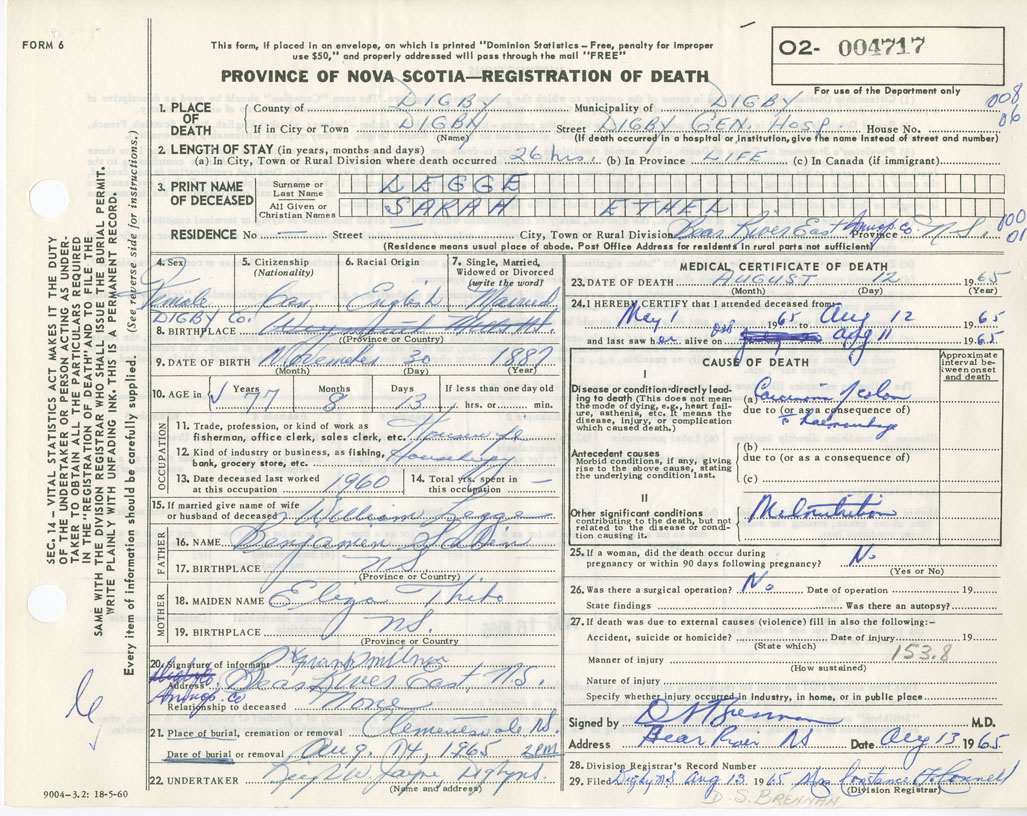 FORM 6
This form, if placed in an envelope, on which is printed "Dominion Statistics – Free, penalty for improper
use $50," and properly addressed will pass through the mail "FREE"
O2- 004717
For use of the Department only
PROVINCE OF NOVA SCOTIA—REGISTRATION OF DEATH
008
06
1. PLACE OF DEATH
County of DIGBY Municipality of DIGBY
If in City or Town DIGBY Street DIGBY GEN. HOSP. House No.
(Name) (If death occurred in a hospital or institution, give the name instead of street and number)
2. LENGTH OF STAY (in years, months and days)
(a) In City, Town or Rural Division where death occurred 26 hrs. (b) In Province LIFE (c) In Canada (if immigrant)
3. PRINT NAME OF DECEASED
Surname or Last Name LEGGE
All Given or Christian Names SARAH ETHEL
RESIDENCE No — Street — City, Town or Rural Division Bear River East Annap. Co. Province N.S.
000
01
(Residence means usual place of abode. Post Office Address for residents in rural parts not sufficient)
SEC. 14 – VITAL STATISTICS ACT MAKES IT THE DUTY
OF THE UNDERTAKER OR PERSON ACTING AS UNDER-
TAKER TO OBTAIN ALL THE PARTICULARS REQUIRED
IN THE "REGISTRATION OF DEATH" AND TO FILE THE
SAME WITH THE DIVISION REGISTRAR WHO SHALL ISSUE THE BURIAL PERMIT.
WRITE PLAINLY WITH UNFADING INK. THIS IS A PERMANENT RECORD.
Every item of information should be carefully supplied. (See reverse side for instructions.)
4. Sex Female
5. Citizenship (Nationality) Can.
6. Racial Origin English
7. Single, Married, Widowed or Divorced (write the word) Married
DIGBY Co.
8. BIRTHPLACE
(Province or Country)
9. DATE OF BIRTH November 30 1887
(Month) (Day) (Year)
10. AGE in Years 77 Months 8 Days 13 If less than one day old
hrs. or min.
OCCUPATION
11. Trade, profession, or kind of work as
fisherman, office clerk, sales clerk, etc. Housewife
12. Kind of industry or business, as fishing,
bank, grocery store, etc.
13. Date deceased last worked at this occupation 1960
14. Total yrs. spent in this occupation —
15. If married give name of wife
or husband of deceased William Legge
FATHER
16. NAME Benjamen
17. BIRTHPLACE N.S.
(Province or Country)
MOTHER
18. MAIDEN NAME Eliza
19. BIRTHPLACE N.S.
(Province or Country)
20. Signature of informant Milner
Address Bear River East, N.S.
Annap. Co
Relationship to deceased None
21. Place of burial, cremation or removal Clementsvale N.S.
Date of burial or removal Aug. 14, 1965 2 P.M.
22. UNDERTAKER W. Jayne Digby N.S.
(Name and address)
9004–3.2: 18-5-60
MEDICAL CERTIFICATE OF DEATH
23. DATE OF DEATH AUGUST 12 1965
(Month) (Day) (Year)
24. I HEREBY CERTIFY that I attended deceased from
May 1 1965 to Aug 12 1965
and last saw her alive on Aug 11 1965
CAUSE OF DEATH
Approximate interval between onset and death
I
Disease or condition directly lead-
ing to death (This does not mean
the mode of dying, e.g., heart fail-
ure, asthenia, etc. It means the
disease, injury, or complication
which caused death.)
(a) Carcinoma of colon
due to (or as a consequence of)
c̄ haemorrhage
Antecedent causes
Morbid conditions, if any, giving
rise to the above cause, stating
the underlying condition last.
(b)
due to (or as a consequence of)
(c)
II
Other significant conditions
contributing to the death, but not
related to the disease or condi-
tion causing it.
Malnutrition
25. If a woman, did the death occur during
pregnancy or within 90 days following pregnancy? No
(Yes or No)
26. Was there a surgical operation? No Date of operation 19
State findings Was there an autopsy?
27. If death was due to external causes (violence) fill in also the following:–
Accident, suicide or homicide? Date of injury 19
(State which)
153.8
Manner of injury
(How sustained)
Nature of injury
Specify whether injury occurred in industry, in home, or in public place
Signed by D S Brennan M.D.
Address Bear River NS Date Aug 13 1965
28. Division Registrar's Record Number
29. Filed Digby N.S. Aug 13 1965 Mrs Constance O'Connell
(Division Registrar)
D. S. BRENNAN